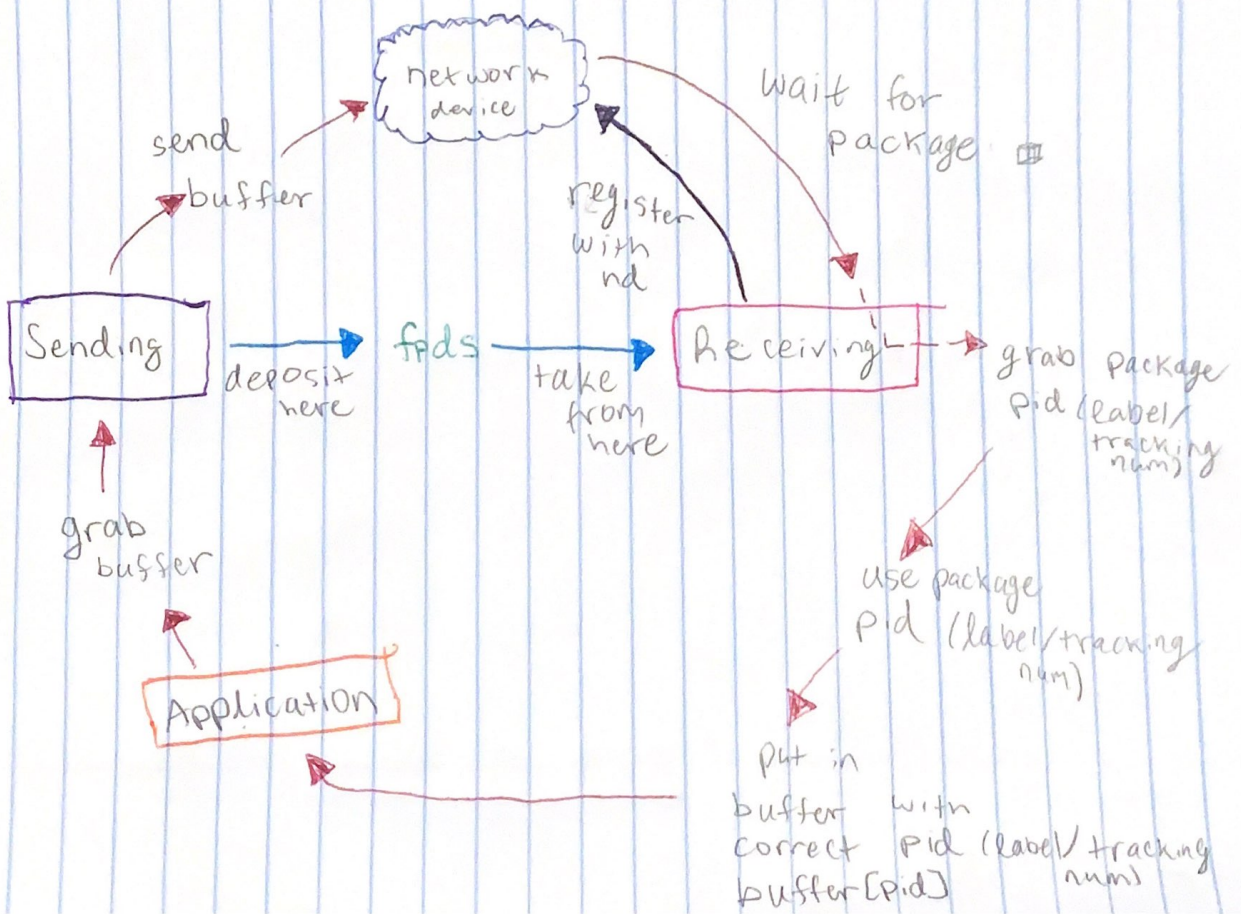 network
device
wait for
package
send
buffer
register
with
nd
Sending
deposit
here
fpds
take
from
here
Receiving
grab package
pid (label/
tracking
num)
grab
buffer
use package
pid (label/tracking
num)
Application
put in
buffer with
correct pid (label/tracking
num)
buffer[pid]